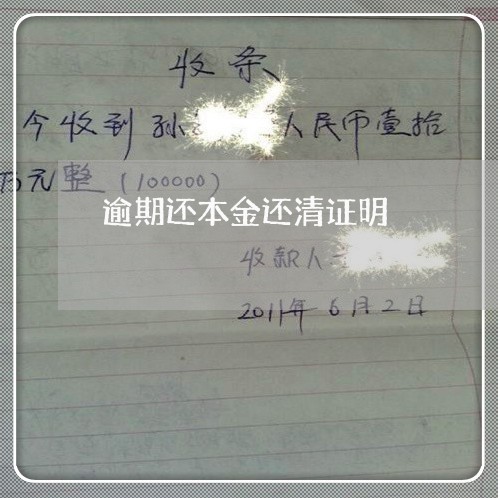 收条
今收到孙 人民币壹拾
万元整(100000)
逾期还本金还清证明
收款人
2011年6月2日